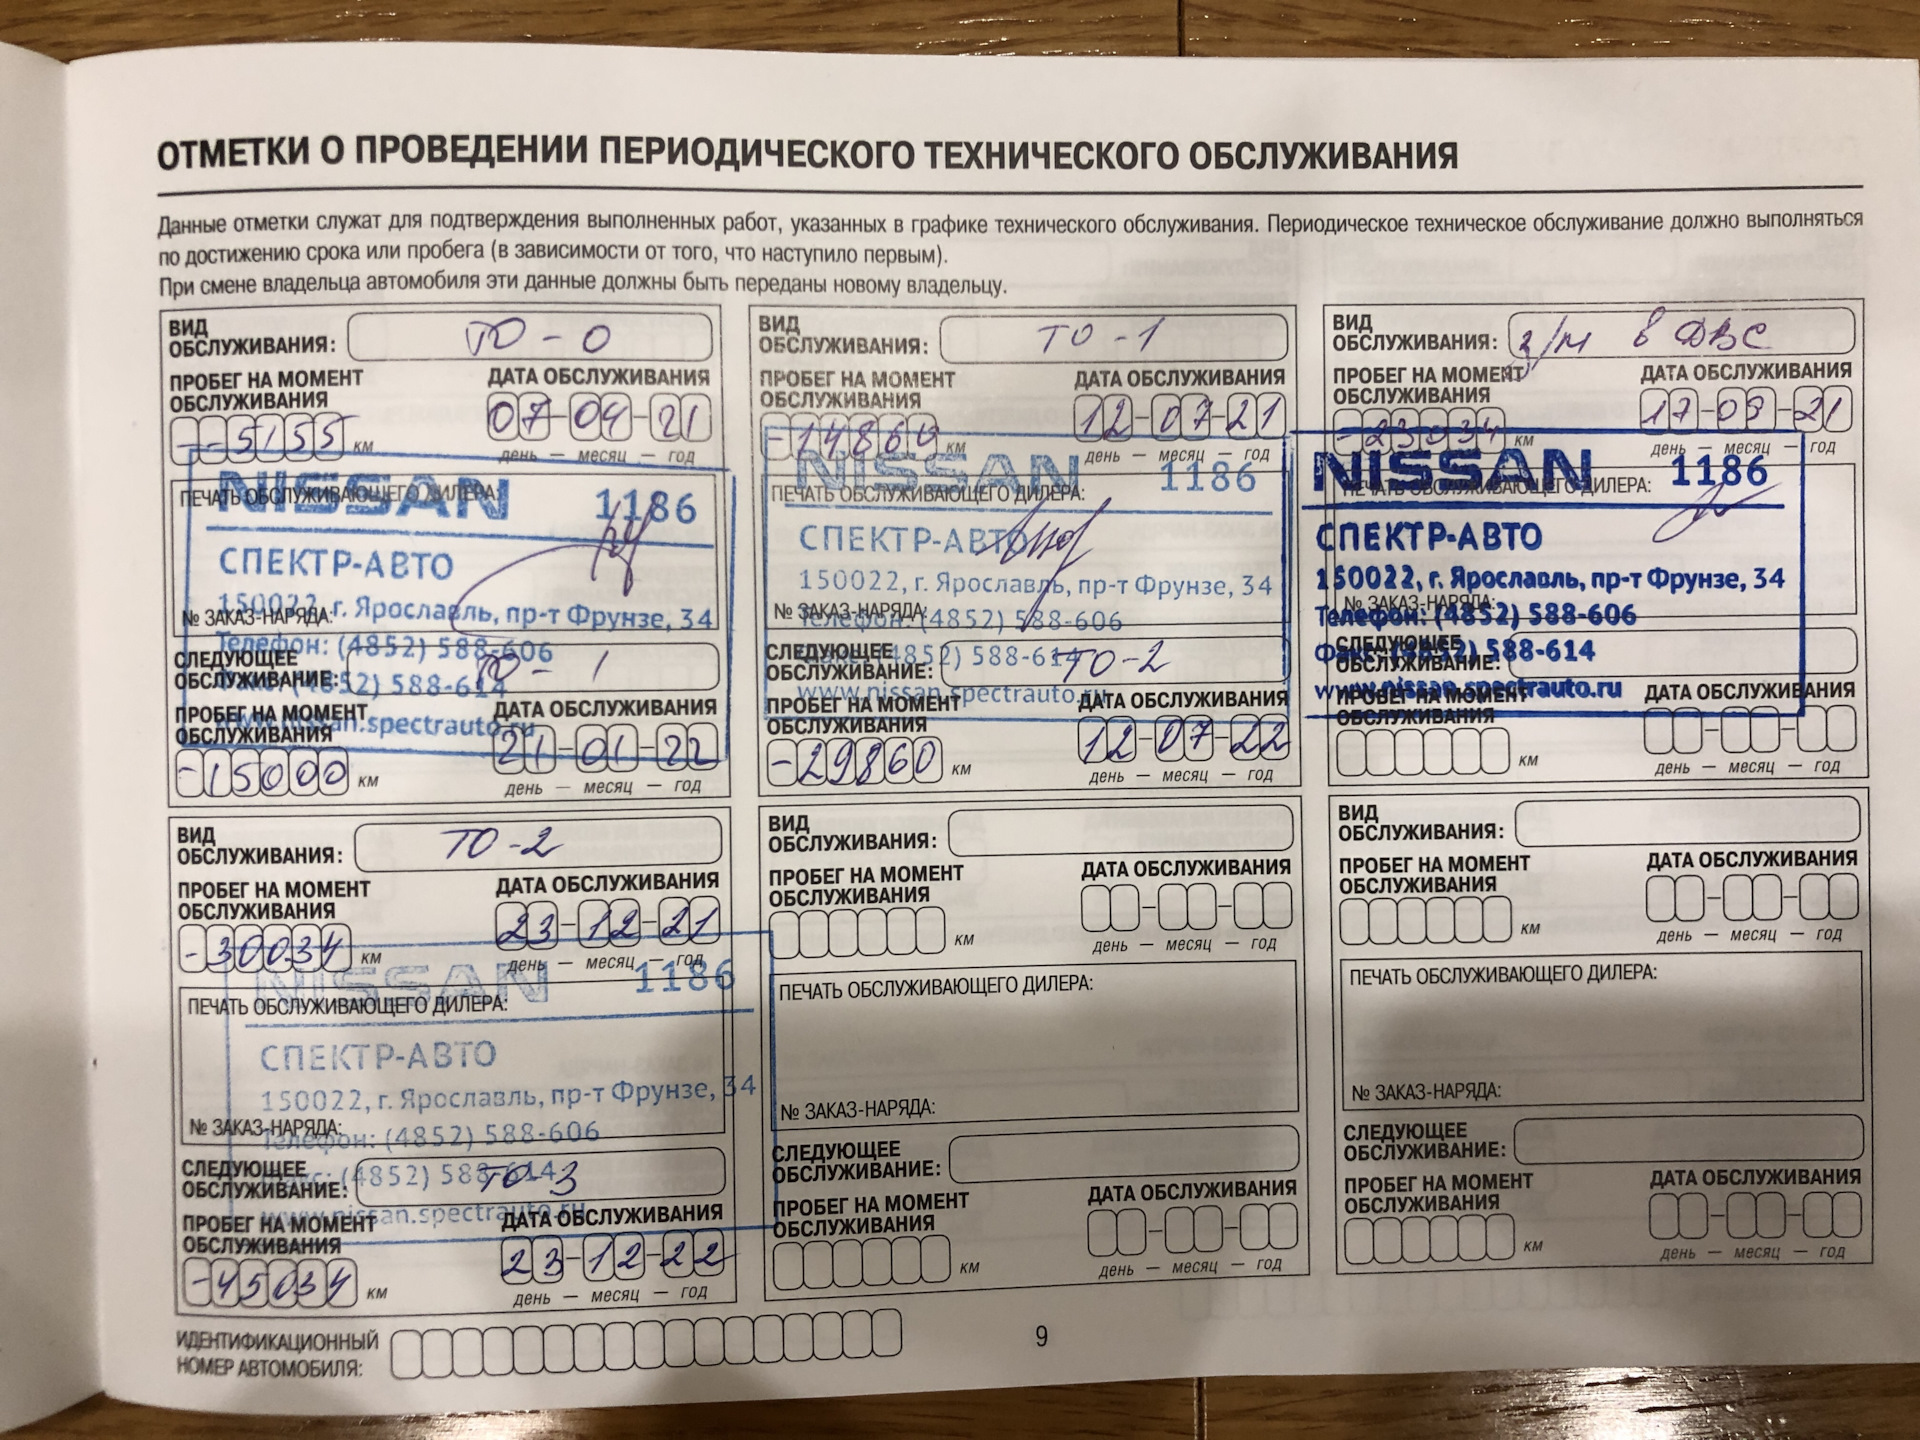 ОТМЕТКИ О ПРОВЕДЕНИИ ПЕРИОДИЧЕСКОГО ТЕХНИЧЕСКОГО ОБСЛУЖИВАНИЯ
Данные отметки служат для подтверждения выполненных работ, указанных в графике технического обслуживания. Периодическое техническое обслуживание должно выполняться
по достижению срока или пробега (в зависимости от того, что наступило первым).
При смене владельца автомобиля эти данные должны быть переданы новому владельцу.
ВИД
ОБСЛУЖИВАНИЯ: ТО - 0
ПРОБЕГ НА МОМЕНТ
ОБСЛУЖИВАНИЯ
--5155 км
ДАТА ОБСЛУЖИВАНИЯ
07-04-21
день — месяц — год
ПЕЧАТЬ ОБСЛУЖИВАЮЩЕГО ДИЛЕРА:
NISSAN 1186
СПЕКТР-АВТО
150022, г. Ярославль, пр-т Фрунзе, 34
№ ЗАКАЗ-НАРЯДА:
Телефон: (4852) 588-606
Факс: (4852) 588-614
www.nissan.spectrauto.ru
СЛЕДУЮЩЕЕ
ОБСЛУЖИВАНИЕ: ТО - 1
ПРОБЕГ НА МОМЕНТ
ОБСЛУЖИВАНИЯ
-15000 км
ДАТА ОБСЛУЖИВАНИЯ
21-01-22
день — месяц — год
ВИД
ОБСЛУЖИВАНИЯ: ТО - 1
ПРОБЕГ НА МОМЕНТ
ОБСЛУЖИВАНИЯ
-14860 км
ДАТА ОБСЛУЖИВАНИЯ
12-07-21
день — месяц — год
ПЕЧАТЬ ОБСЛУЖИВАЮЩЕГО ДИЛЕРА:
NISSAN 1186
СПЕКТР-АВТО
150022, г. Ярославль, пр-т Фрунзе, 34
№ ЗАКАЗ-НАРЯДА:
Телефон: (4852) 588-606
Факс: (4852) 588-614
www.nissan.spectrauto.ru
СЛЕДУЮЩЕЕ
ОБСЛУЖИВАНИЕ: ТО-2
ПРОБЕГ НА МОМЕНТ
ОБСЛУЖИВАНИЯ
-29860 км
ДАТА ОБСЛУЖИВАНИЯ
12-07-22
день — месяц — год
ВИД
ОБСЛУЖИВАНИЯ: з/м в ДВС
ПРОБЕГ НА МОМЕНТ
ОБСЛУЖИВАНИЯ
-23034 км
ДАТА ОБСЛУЖИВАНИЯ
17-09-21
день — месяц — год
ПЕЧАТЬ ОБСЛУЖИВАЮЩЕГО ДИЛЕРА:
NISSAN 1186
СПЕКТР-АВТО
150022, г. Ярославль, пр-т Фрунзе, 34
№ ЗАКАЗ-НАРЯДА:
Телефон: (4852) 588-606
Факс: (4852) 588-614
www.nissan.spectrauto.ru
СЛЕДУЮЩЕЕ
ОБСЛУЖИВАНИЕ:
ПРОБЕГ НА МОМЕНТ
ОБСЛУЖИВАНИЯ
км
ДАТА ОБСЛУЖИВАНИЯ
день — месяц — год
ВИД
ОБСЛУЖИВАНИЯ: ТО -2
ПРОБЕГ НА МОМЕНТ
ОБСЛУЖИВАНИЯ
-30034 км
ДАТА ОБСЛУЖИВАНИЯ
23-12-21
день — месяц — год
ПЕЧАТЬ ОБСЛУЖИВАЮЩЕГО ДИЛЕРА:
NISSAN 1186
СПЕКТР-АВТО
150022, г. Ярославль, пр-т Фрунзе, 34
№ ЗАКАЗ-НАРЯДА:
Телефон: (4852) 588-606
Факс: (4852) 588-614
www.nissan.spectrauto.ru
СЛЕДУЮЩЕЕ
ОБСЛУЖИВАНИЕ: ТО-3
ПРОБЕГ НА МОМЕНТ
ОБСЛУЖИВАНИЯ
-45034 км
ДАТА ОБСЛУЖИВАНИЯ
23-12-22
день — месяц — год
ВИД
ОБСЛУЖИВАНИЯ:
ПРОБЕГ НА МОМЕНТ
ОБСЛУЖИВАНИЯ
км
ДАТА ОБСЛУЖИВАНИЯ
день — месяц — год
ПЕЧАТЬ ОБСЛУЖИВАЮЩЕГО ДИЛЕРА:
№ ЗАКАЗ-НАРЯДА:
СЛЕДУЮЩЕЕ
ОБСЛУЖИВАНИЕ:
ПРОБЕГ НА МОМЕНТ
ОБСЛУЖИВАНИЯ
км
ДАТА ОБСЛУЖИВАНИЯ
день — месяц — год
ВИД
ОБСЛУЖИВАНИЯ:
ПРОБЕГ НА МОМЕНТ
ОБСЛУЖИВАНИЯ
км
ДАТА ОБСЛУЖИВАНИЯ
день — месяц — год
ПЕЧАТЬ ОБСЛУЖИВАЮЩЕГО ДИЛЕРА:
№ ЗАКАЗ-НАРЯДА:
СЛЕДУЮЩЕЕ
ОБСЛУЖИВАНИЕ:
ПРОБЕГ НА МОМЕНТ
ОБСЛУЖИВАНИЯ
км
ДАТА ОБСЛУЖИВАНИЯ
день — месяц — год
ИДЕНТИФИКАЦИОННЫЙ
НОМЕР АВТОМОБИЛЯ:
9